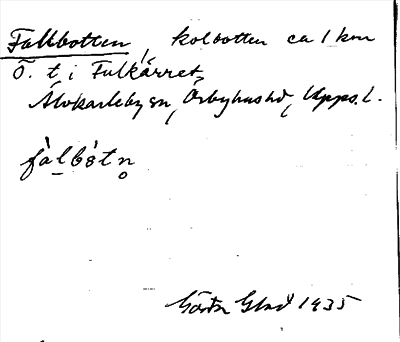 Fallbotten, kolbotten ca 1 km
Ö. t i Fulkärret,
Älvkarleby sn, Örbyhus hd, Upps. l.
fàlbótn̥
Gösta Glad 1935